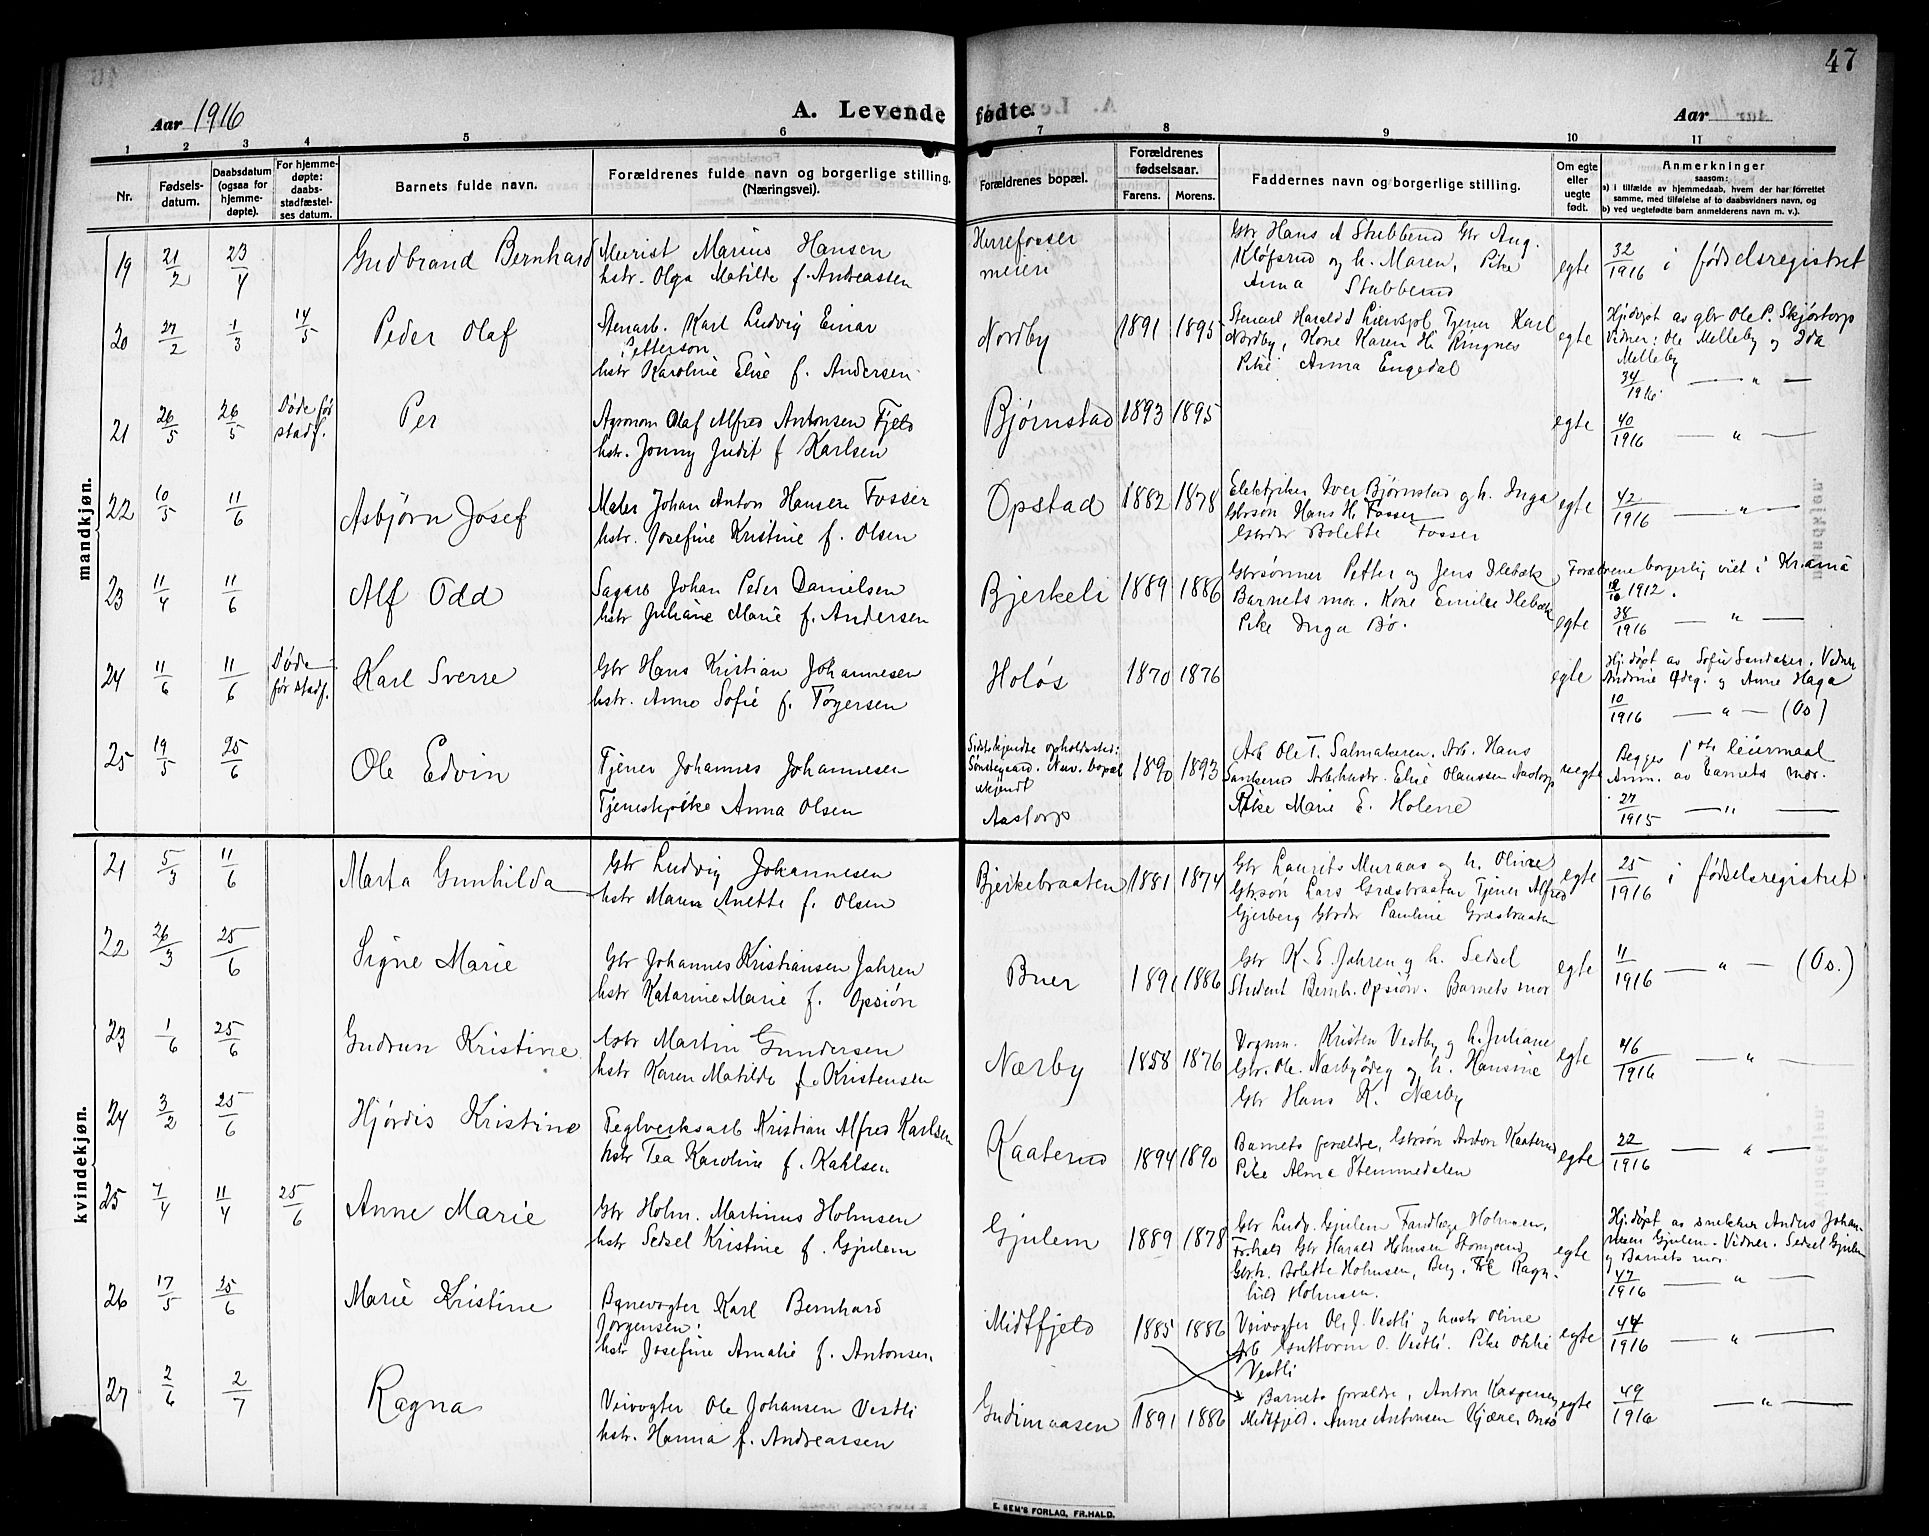 47
Aar 1916
A. Levende fødte.
Aar
1 2 3 4 5 6 7 8 9 10 11
Nr.
Fødselsdatum.
Daabsdatum (ogsaa for hjemmedøpte).
For hjemmedøpte: daabsstadfæstelses datum.
Barnets fulde navn.
Forældrenes fulde navn og borgerlige stilling. (Næringsvei).
Forældrenes bopæl.
Forældrenes fødselsaar.
Farens. Morens.
Faddernes navn og borgerlige stilling.
Om egte eller uegte født.
Anmerkninger
saasom:
a) i tilfælde av hjemmedaab, hvem der har forrettet samme, med tilføielse af to daabsvidners navn, og
b) ved uegtefødte barn anmelderens navn m. v.).
mandkjøn.
19 21/2 23/4 Gudbrand Bernhard
Meierist Marius Hansen
hstr. Olga Matilde f. Andreassen
Herrefosser
meieri
Gbr Hans A Stubberud Gbr Aug.
Kløfsrud og h. Maren, Pike
Anna Stubberud
egte
32/1916 i fødselsregistret
20 27/2 1/3 14/5 Peder Olaf
Stenarb. Karl Ludvig Einar
Petterson
hstr Karoline Elise f. Andersen
Nordby 1891 1895
Nordby, Kone Karen H. Ringnes
Pike Anna Engedal
egte
Hj.døpt av gbr Ole P. Skjørtorp
Vidner: Ole Melleby og Ida
Melleby
34/1916 — " —
21 26/5 26/5 Døde før
stadf.
Per
Agronom Olaf Alfred Antonsen Fjeld
hstr. Jonny Judit f Karlsen
Bjørnstad 1893 1895
egte
40/1916 — " —
22 10/5 11/6 Asbjørn Josef
Maler Johan Anton Hansen Fosser
hstr. Josefine Kristine f. Olsen
Opstad 1882 1878
Elektriker Iver Bjørnstad og h. Inga
Gbrsøn Hans H. Fosser
Gbrdtr Bolette Fosser
egte
42/1916 — " —
23 11/4 11/6 Alf Odd
Sagarb Johan Peder Danielsen
hstr Juliane Marie f. Andersen
Bjerkeli 1889 1886
Gbrsønner Petter og Jens Ilebæk
Barnets mor. Kone Emilie Ilebæk
Pike Inga Bø.
egte
Forældrene borgerlig viet i Kr.ania
1912.
38/1916 — " —
24 11/6 11/6 Døde
før stadf.
Karl Sverre
Gbr Hans Kristian Johannesen
hstr. Anne Sofie f. Torgersen
Holøs 1870 1876
egte
Hj.døpt av Sofie Sandaker. Vidner
Andrine Ødeg. og Anne Haga
10/1916 — " — (Os)
25 19/5 25/6 Ole Edvin
Tjener Johannes Johannesen
Tjenestepike Anna Olsen
Sidstkjendte opholdssted:
Sønstegaard. Nuv. bopæl
ukjendt
Aastorp
1890 1893
Arb Ole T. Salmakeren. Arb. Hans
Sankerud Arb.hustr. Elise Olaussen Aastorp
Pike Marie E. Holene
uegte
Begges 1ste leiermaal
Anm. av barnets mor.
27/1915 — " —
kvindekjøn.
21 5/3 11/6 Marta Gunhilda
Gbr Ludvig Johannesen
hstr Maren Anette f. Olsen
Bjerkebraaten 1881 1874
Gbr Laurits Muraas og h. Oline
Gbrsøn Lars Græsbraaten Tjener Alfred
Gjerberg Gbrdtr Pauline Græsbraaten
egte
25/1916 i fødselsregistret
22 26/3 25/6 Signe Marie
Gbr Johannes Kristiansen Jahren
hstr Katarine Marie f. Opsiøn
Buer 1891 1886
Gbr K. E. Jahren og h. Sedsel
Student Bernh. Opsiøn. Barnets mor
egte
11/1916 — " — (Os.)
23 1/6 25/6 Gudrun Kristine
Gbr Martin Gundersen
hstr Karen Matilde f. Kristensen
Nærby 1858 1876
Vognm. Kristen Vestby og h. Juliane
Gbr. Ole Nærbyødeg og h. Hansine
Gbr Hans K. Nærby
egte
46/1916 — " —
24 3/2 25/6 Hjørdis Kristine
Teglverksarb Kristian Alfred Karlsen
hstr Tea Karoline f. Kahlsen
Kaaterud 1894 1890
Barnets forældre, Gbrsøn Anton Kaaterud
Pike Alma Stemmedalen
egte
22/1916 — " —
25 7/4 11/4 25/6 Anne Marie
Gbr Holm. Martinus Holmsen
hstr Sedsel Kristine f. Gjulem
Gjulem 1889 1878
Gbr Ludv. Gjulem Tandlæge Holmsen,
Fr.hald Gbr Harald Holmsen
Gbrh. Bolette Holmsen, Berg. Frk Ragnhild Holmsen.
egte
Hj.døpt av snekker Anders Johannesen Gjulem. Vidner. Sedsel Gjulem
og Barnets mor
47/1916 — " —
26 17/5 25/6 Marie Kristine
Banevogter Karl Bernhard
Jørgensen.
hstr Josefine Amalie f. Antonsen.
Midtfjeld 1885 1886
Veivogter Ole J. Vestli og hustr Oline
Arb Guttorm O. Vestli. Pike
Vestli
egte
44/1916 — " —
27 2/6 2/7 Ragna
Veivogter Ole Johansen Vestli
hstr. Hanna f. Andreassen
Gudimaasen 1891 1886
Barnets forældre, Anton Kaspersen
Midtfjeld. Anne Antonsen Kjære,
egte
49/1916 — " —
E. SEM'S FORLAG, FR.HALD.